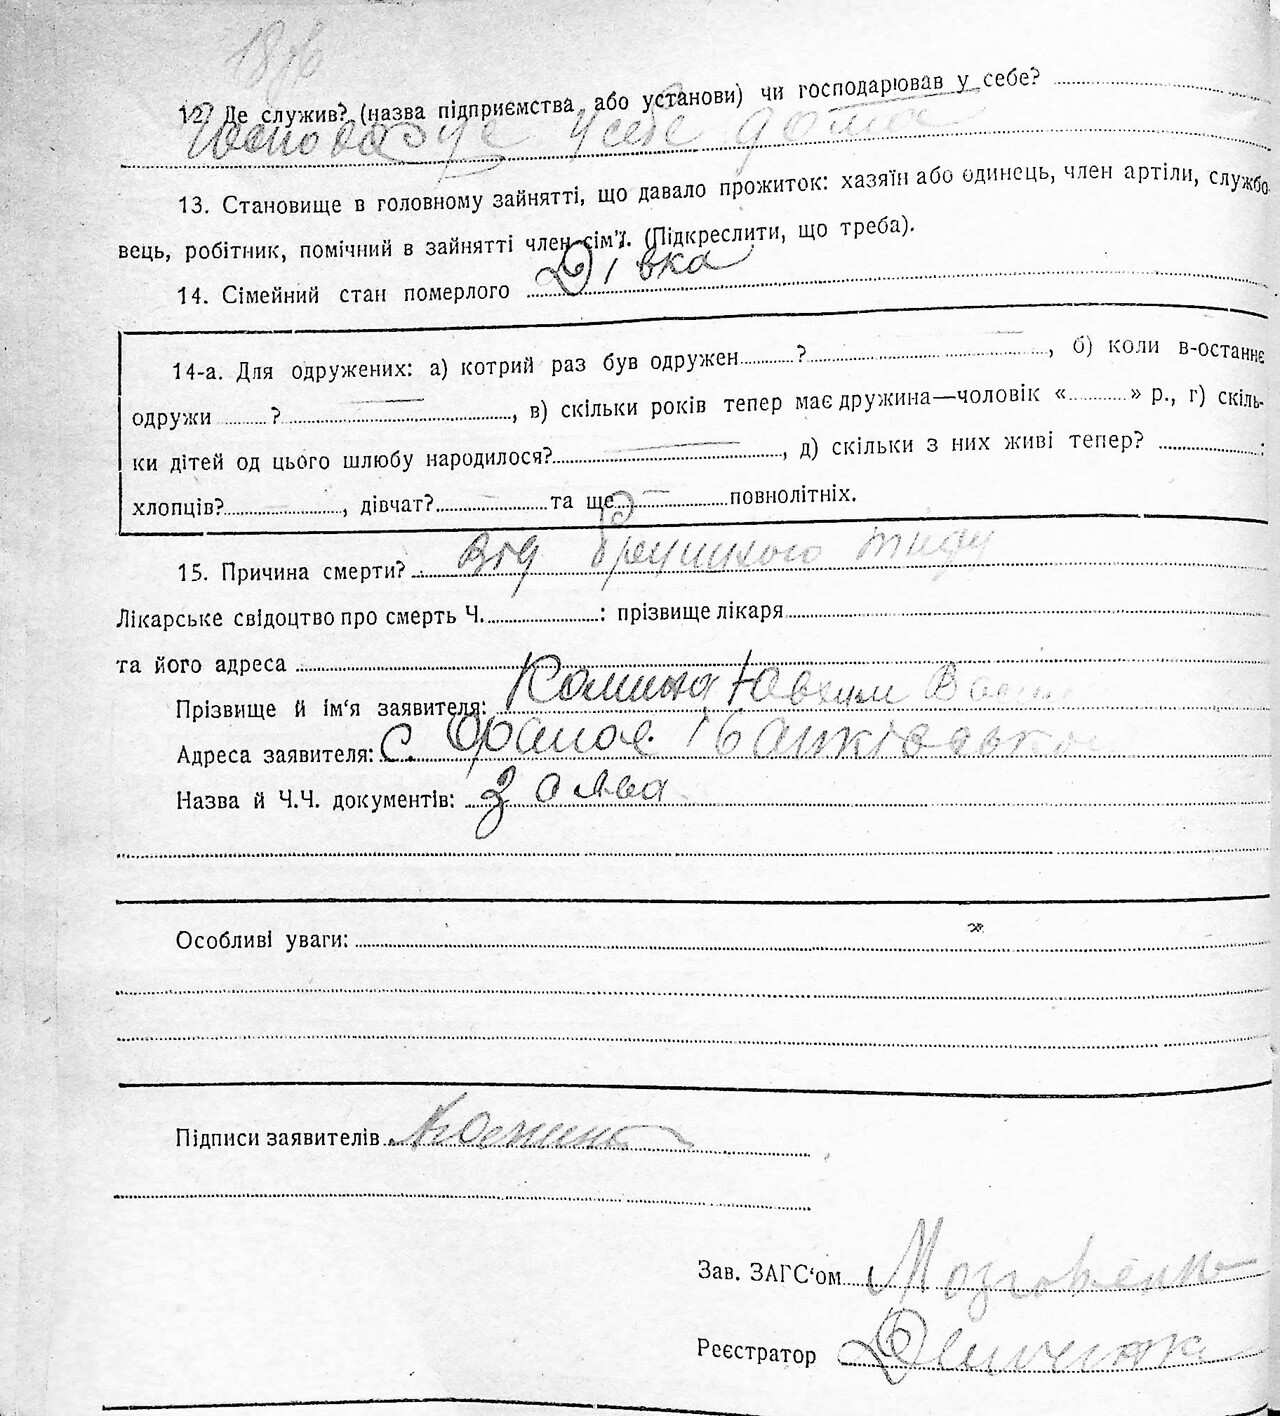 12. Де служив? (назва підприємства або установи) чи господарював у себе?
у себе дома
13. Становище в головному зайнятті, що давало прожиток: хазяїн або одинець, член артілі, службо-
вець, робітник, помічний в зайнятті член сім'ї. (Підкреслити, що треба).
14. Сімейний стан померлого Дівка
14-а. Для одружених: а) котрий раз був одружен ? , б) коли в-останнє
одружи ? , в) скільки років тепер має дружина—чоловік « » р., г) скіль-
ки дітей од цього шлюбу народилося? , д) скільки з них живі тепер? :
хлопців? , дівчат? та ще повнолітніх.
15. Причина смерти? Від брушного тифу
Лікарське свідоцтво про смерть Ч. : прізвище лікаря
та його адреса
Прізвище й ім'я заявителя: Ювхим
Адреса заявителя: с.
Назва й Ч.Ч. документів: заява
Особливі уваги:
Підписи заявителів
Зав. ЗАГС'ом
Реєстратор